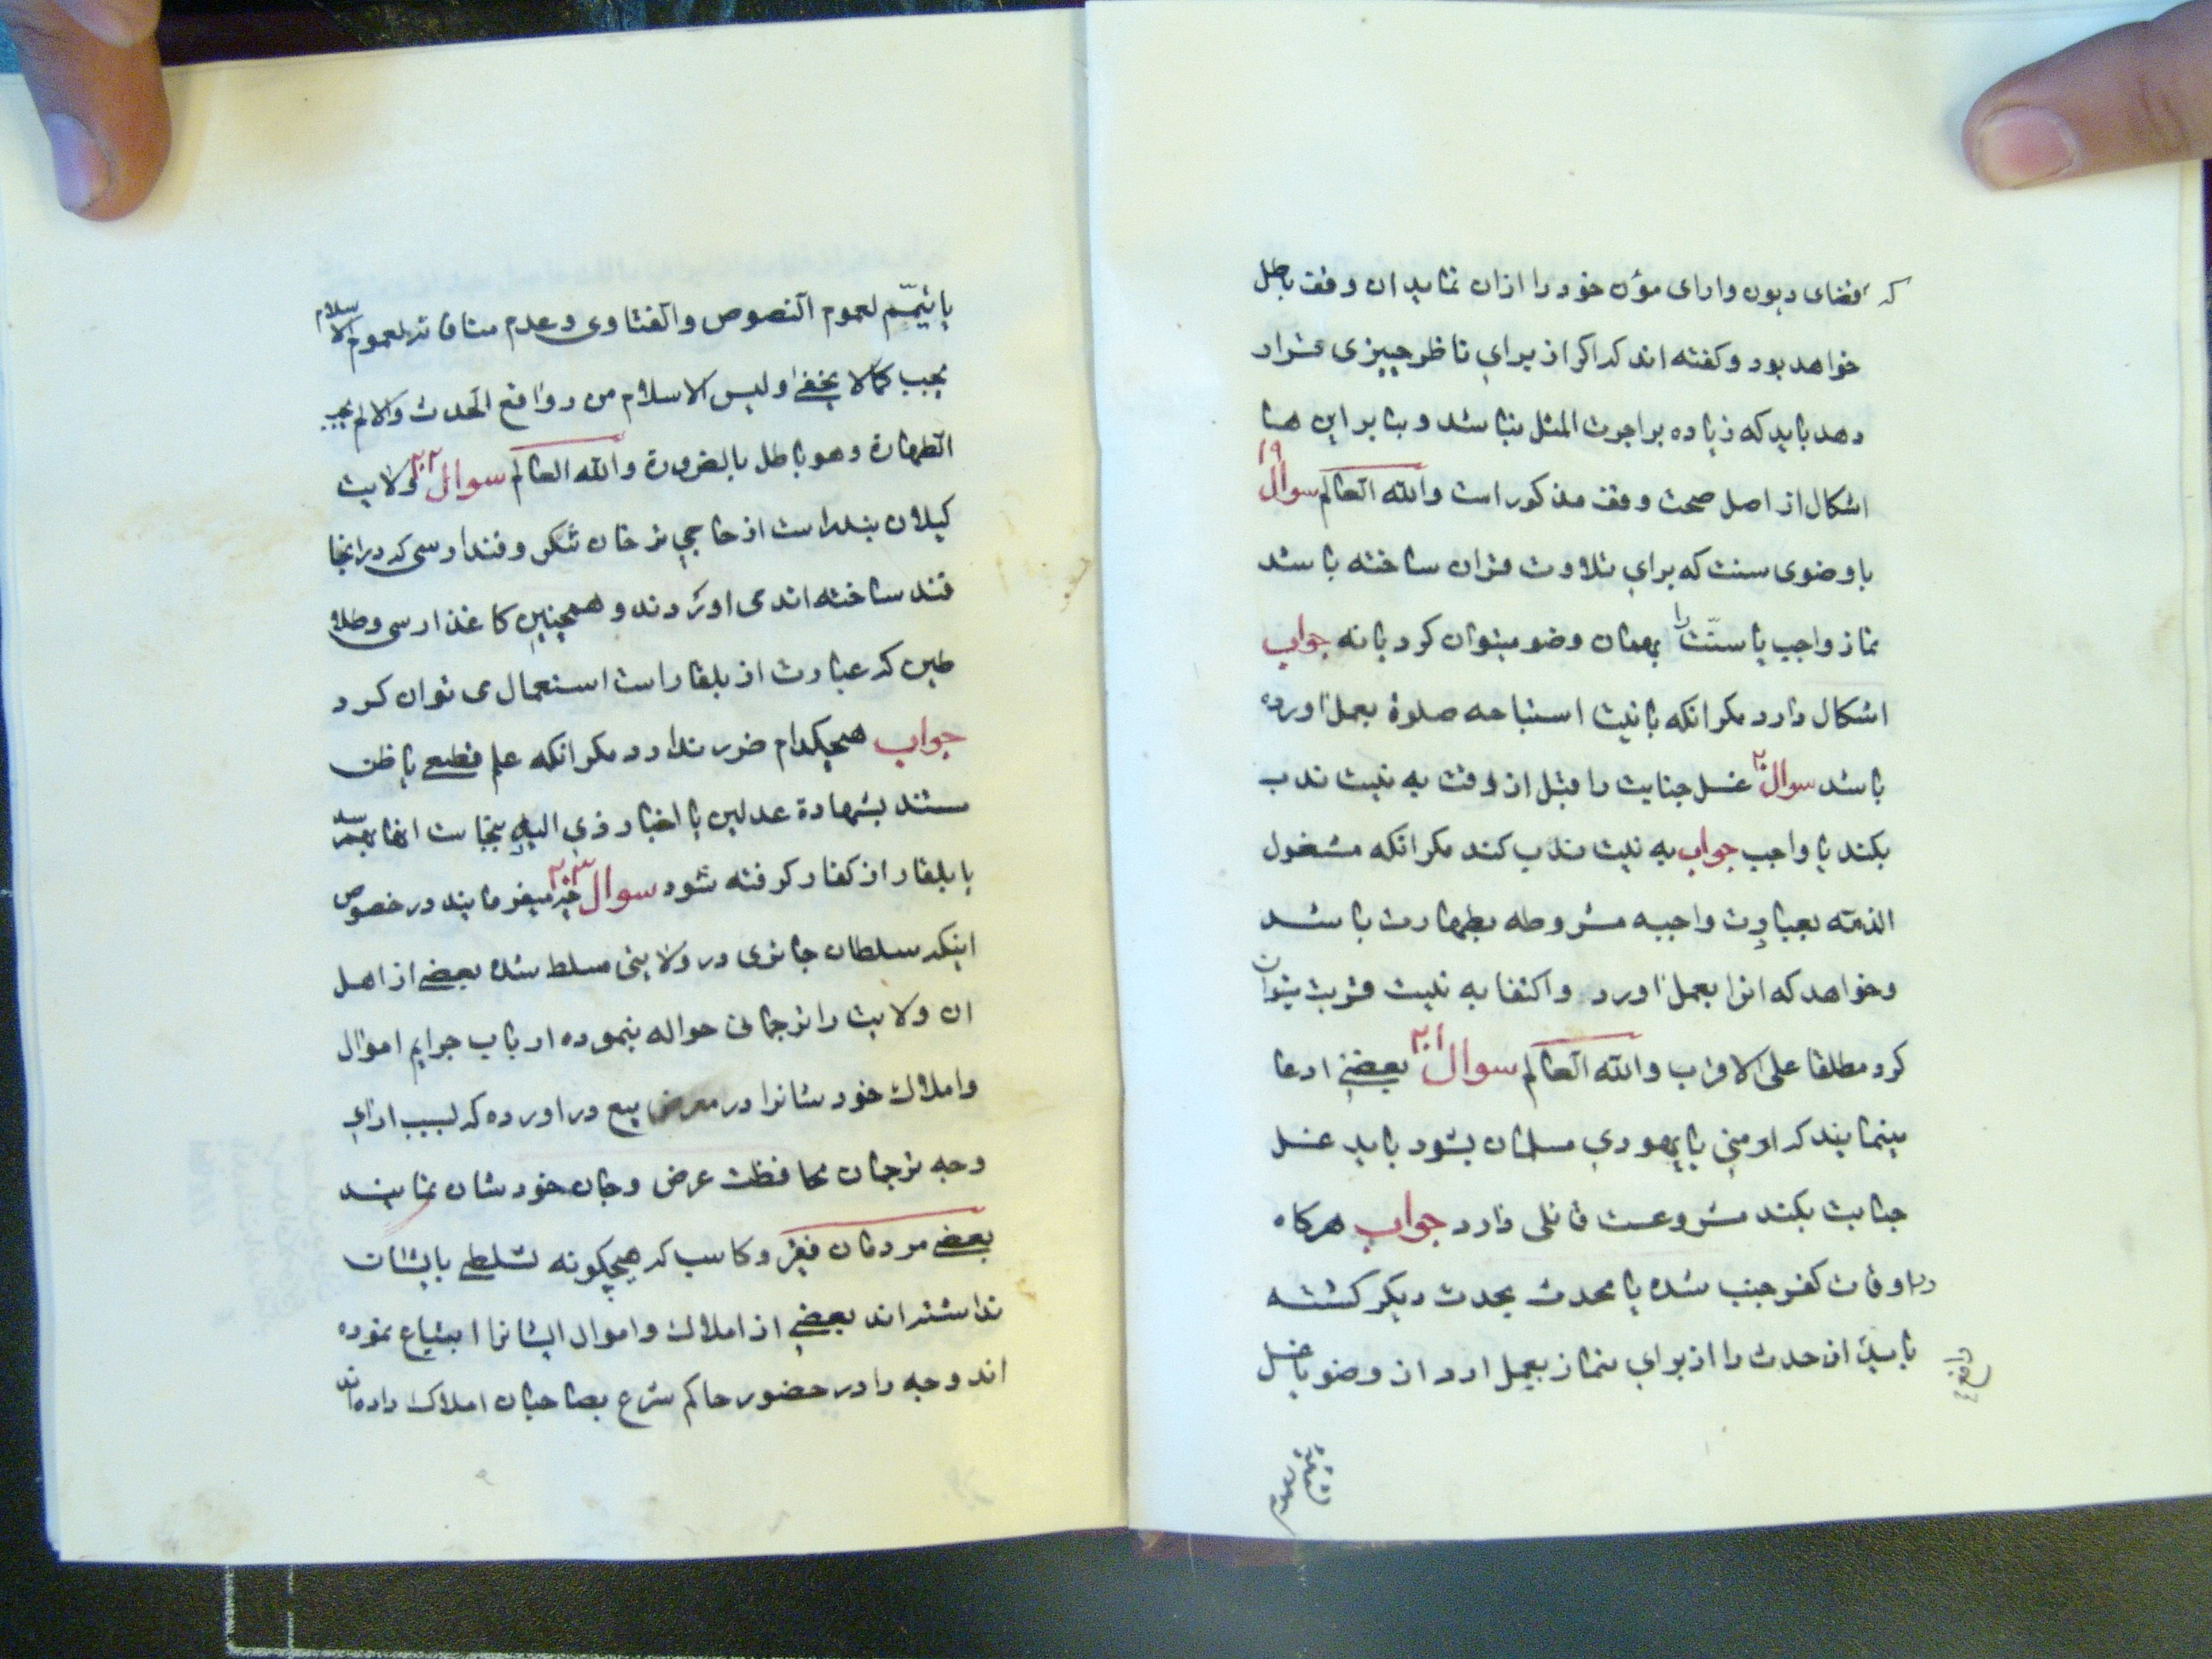 که قضای دیون و ادای مؤن خود را ازان نماید ان وقف باطل
خواهد بود و کفته اند که اکر از برای ناظر چیزی قرار
دهد باید که زیاده بر اجرت المثل نباشد و بنا بر این ها
اشکال از اصل صحت وقف مذکور است والله العالم سوال ۱۹
با وضوی سنت که برای تلاوت قران ساخته باشد
نماز واجب یا سنّت را بهمان وضو میتوان کرد یا نه جواب
اشکال دارد مکر انکه بانیت استباحه صلوة بعمل اورده
باشد سوال ۲۰ غسل جنابت را قبل از وقت به نیت ندب
بکند یا واجب جواب به نیت ندب کند مکر انکه مشغول
الذمه بعبادت واجبه مشروطه بطهارت باشد
وخواهد که انرا بعمل اورد و اکتفا به نیت قربت میتوان
کرد مطلقا علی الاقرب والله العالم سوال ۲۰۱ بعضی ادعا
مینمایند که ارمنی یا یهودی مسلمان بشود باید غسل
جنابت بکند مشروعست قائلی دارد جواب هرکاه
در اوقات کفر جنب شده یا محدث بحدث دیکر کشته
باید ان حدث را از برای نماز بعمل ارد از وضو یا غسل
رافع
یا تیمّم لعموم النصوص والفتاوی وعدم منافاته لعموم الاسلام
یجب کمالا یخفی ولیس الاسلام من روافع الحدث والا لم یجب
الطهارة وهو باطل بالضرورة والله العالم سوال ۲۰۲ ولایت
کیلان بنداست از حاجی ترخان شکر و قند ارسی که در انجا
قند ساخته اند می اورند و همچنین کاغذ ارسی و طلاو
طین که عبارت از بلغار است استعمال می توان کرد
جواب هیچکدام ضرر ندارد مکر انکه علم قطعی یا ظن
مستند بشهادة عدلین یا اخبار ذی الید بنجاست انها بهم رسد
یا بلغار از کفار کرفته شود سوال ۲۰۳ چه میفرمایند در خصوص
اینکه سلطان جائری در ولایتی مسلط شده بعضی از اهل
ان ولایت را ترجمانی حواله بنموده ارباب جرایم اموال
واملاک خودشانرا در معرض بیع در اورده که بسبب ادای
وجه ترجمان محافظت عرض وجان خودشان نمایند
بعضی مردمان فقیر و کاسب که هیچکونه تسلطی بایشان
نداشته اند بعضی از املاک و اموال ایشانرا ابتیاع نموده
اند و وجه را در حضور حاکم شرع بصاحبان املاک داده اند